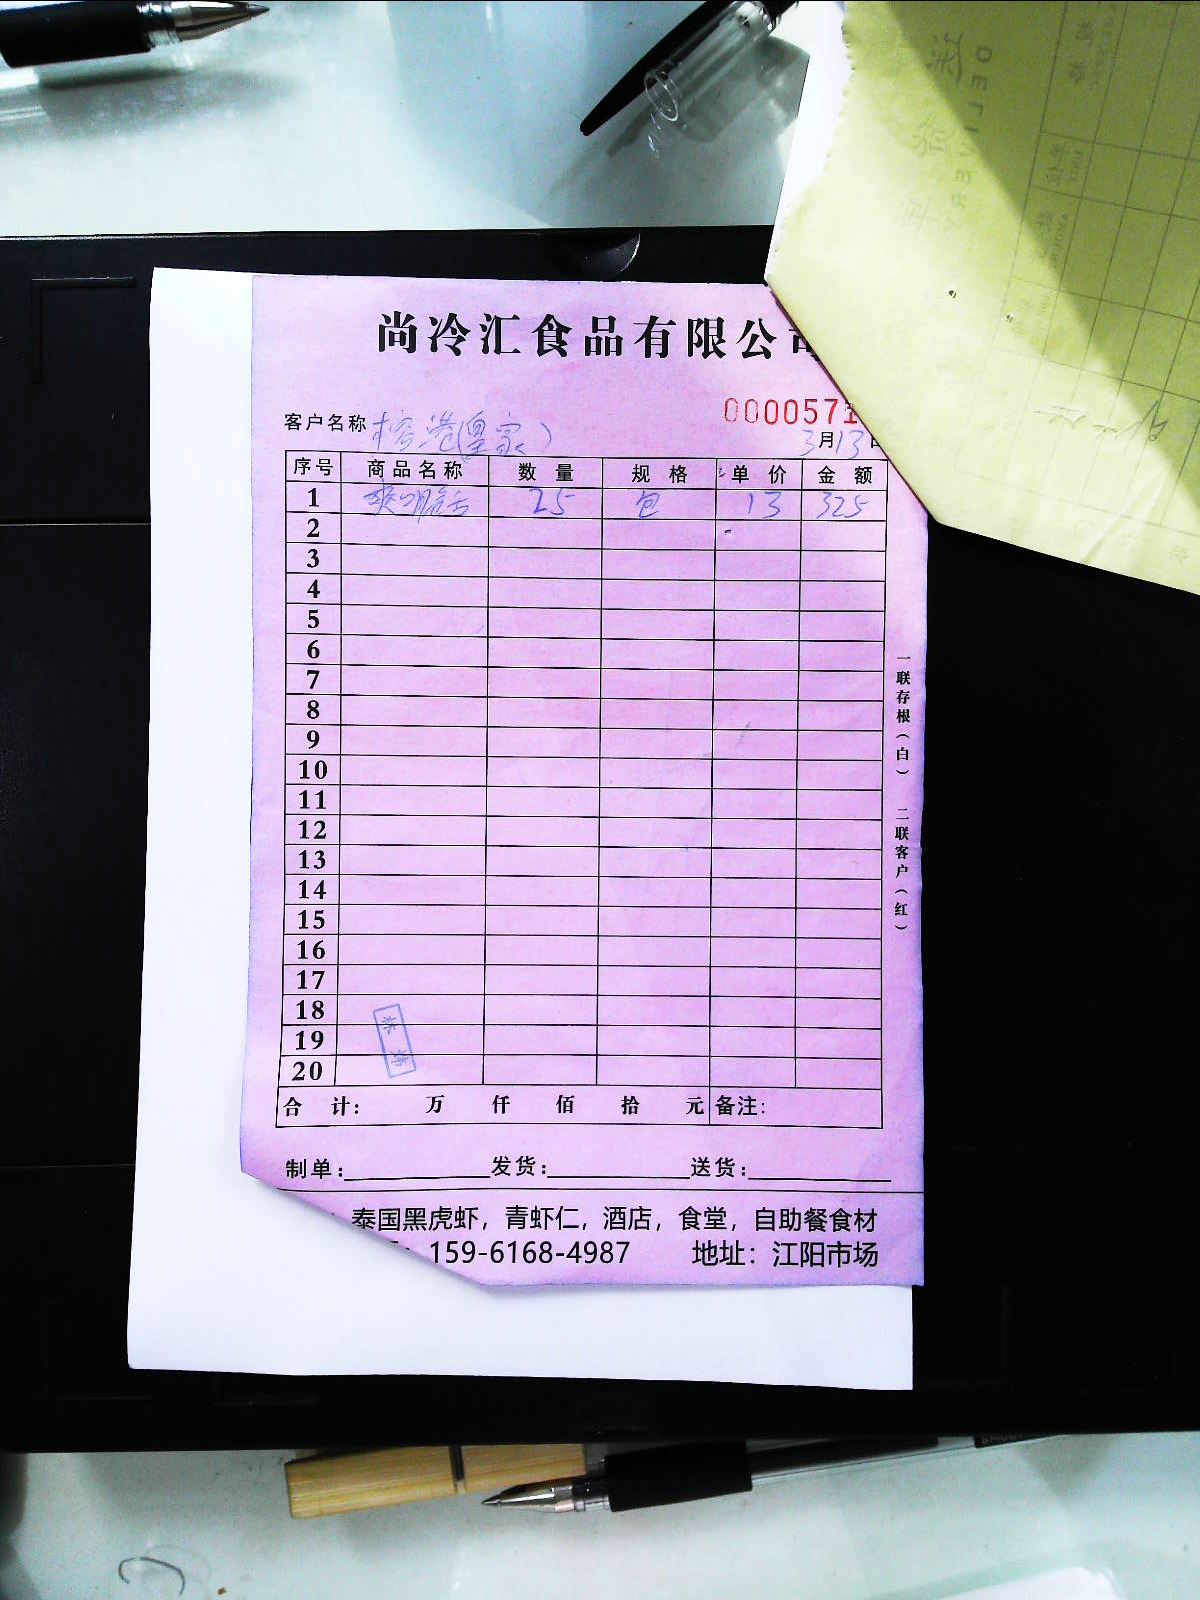 尚冷汇食品有限公司
000057
客户名称 榕港(皇家)
3月13日
序号 商品名称 数量 规格 单价 金额
1 25 包 13 325
2
3
4
5
6
7
8
9
10
11
12
13
14
15
16
17
18
19
20
合计: 万 仟 佰 拾 元 备注:
制单: 发货: 送货:
泰国黑虎虾，青虾仁，酒店，食堂，自助餐食材
159-6168-4987 地址：江阳市场
一联存根（白） 二联客户（红）